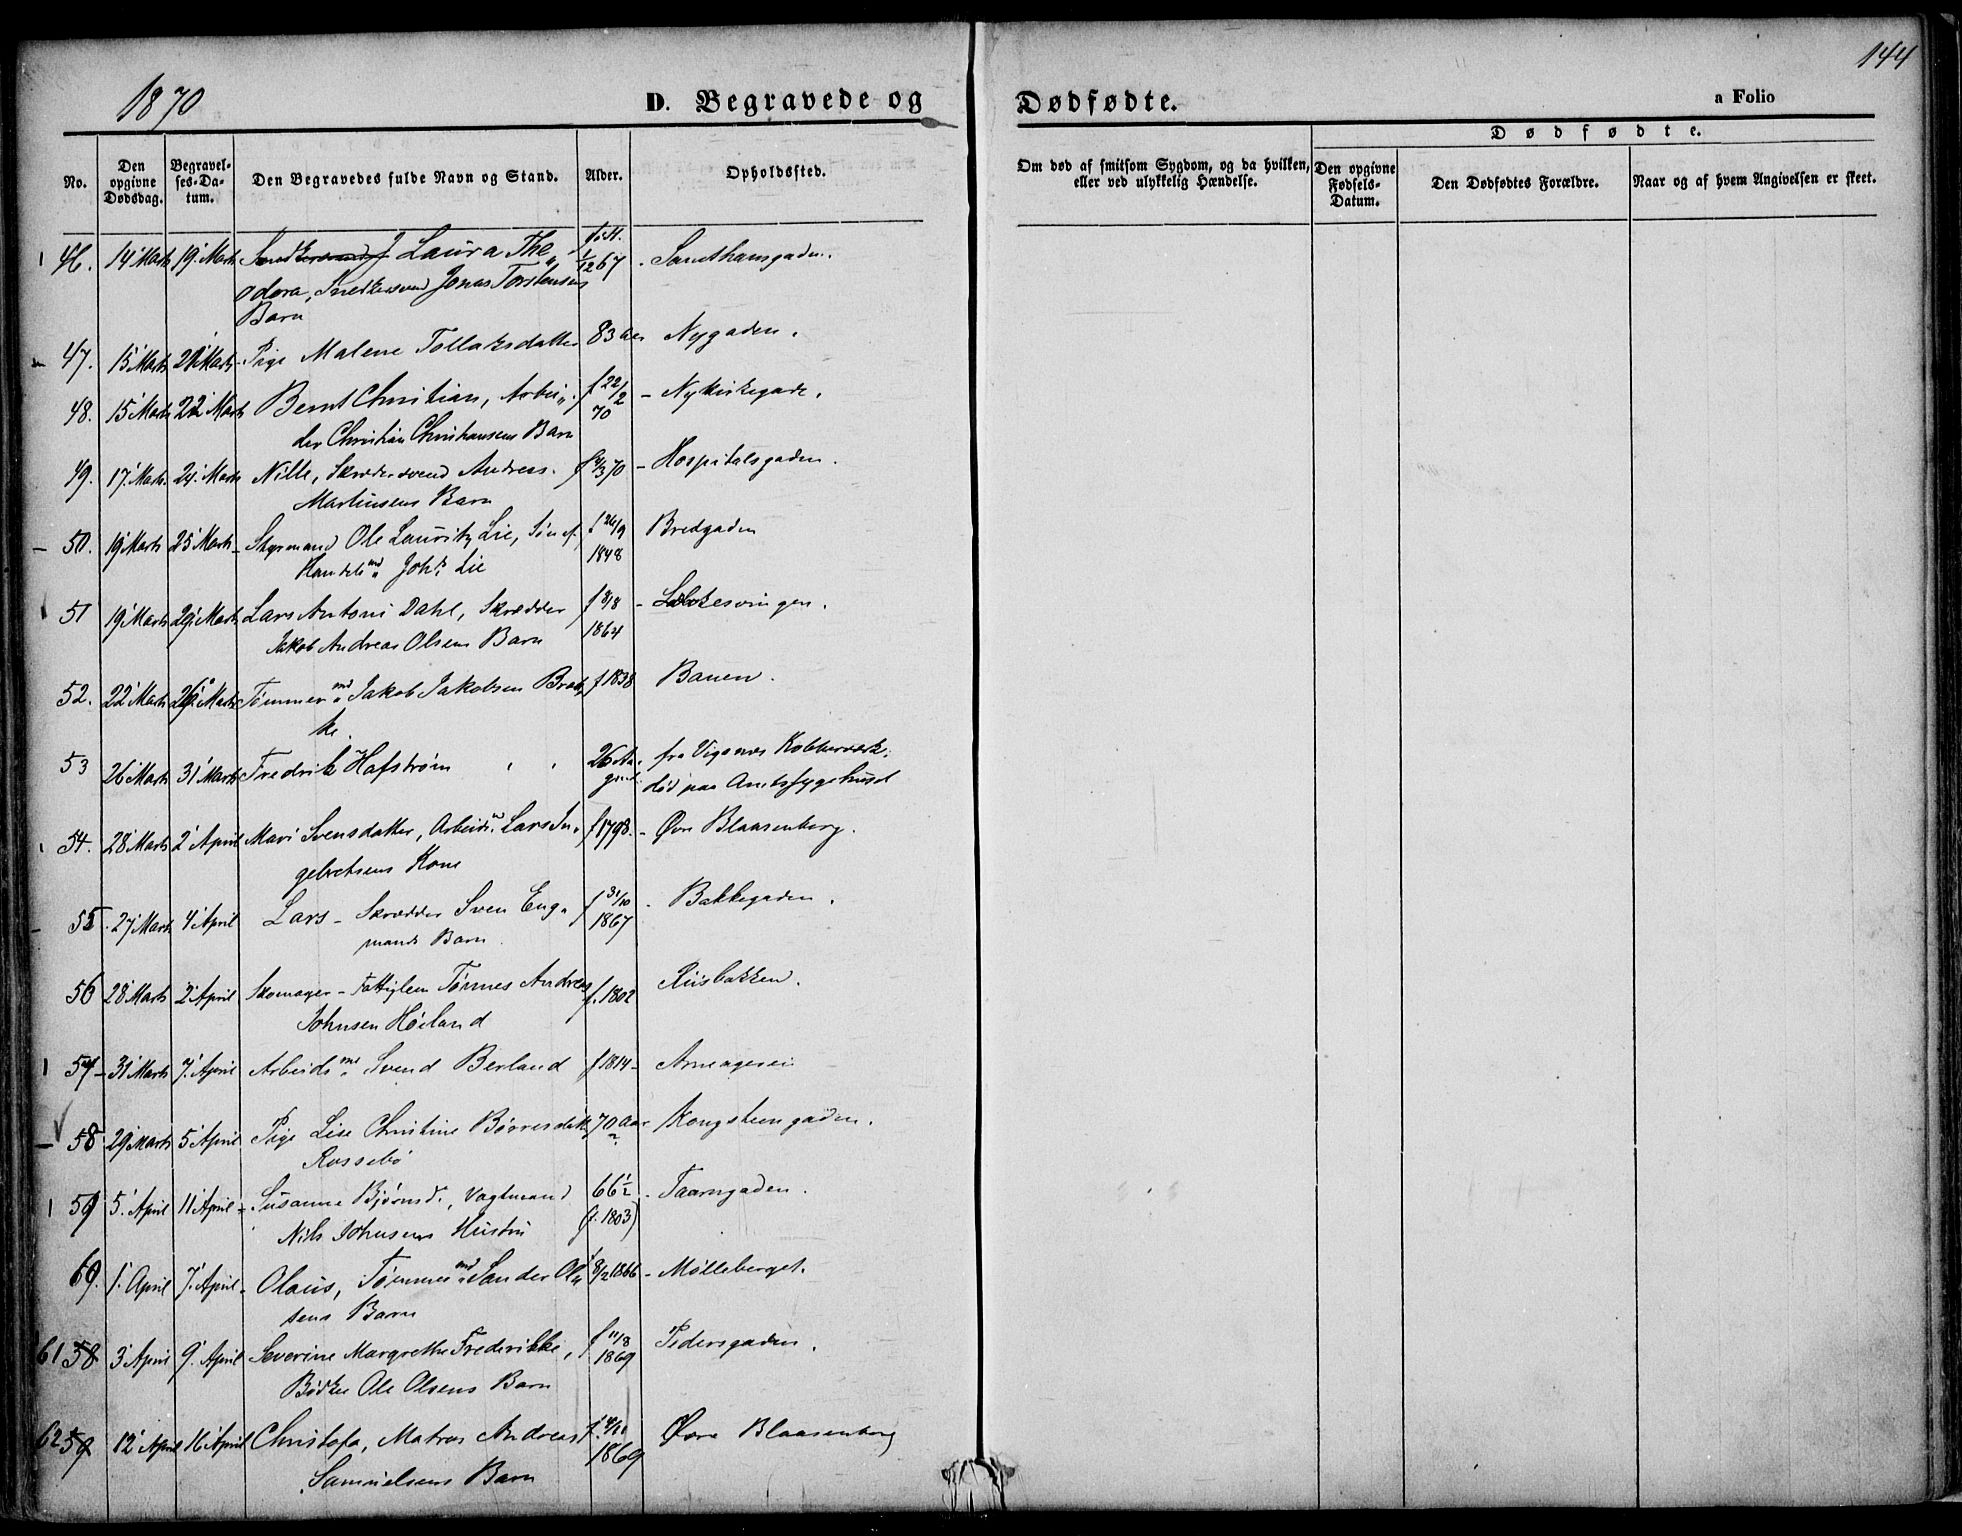 1870
D. Begravede og Dødfødte.
a Folio 144
No.
Den opgivne Dødsdag.
Begravelses-Datum.
Den Begravedes fulde Navn og Stand.
Alder.
Opholdssted.
Om død af smitsom Sygdom, og da hvilken, eller ved ulykkelig Hændelse.
Dødfødte.
Den opgivne Fødsels-Datum.
Den Dødfødtes Forældre.
Naar og af hvem Angivelsen er skeet.
46. 14' Marts 19' Marts Laura The„ født 1/12 67 . Santhansgaden.
odora, Snedkersvend Jonas Torstensens
Barn
47. 15' Marts 21' Marts - Pige Malene Tollaksdatter 83 Aar Nygaden.
48. 15' Marts 22' Marts Bernt Christian, Arbei„ f 22/2 70 - Nykirkegade.
der Christian Christiansens Barn
49. 17' Marts 24' Marts Nille, Skrædersvend Andreas /3 70 - Hospitalsgaden.
Martinsens Barn
50. 19' Marts 25' Marts - Styrmand Ole Lauritz Lie, Søn af f 26/9 1848 Bredgaden
Handelsmd Johs Lie
51 19' Marts 29' Marts Lars Antoni Dahl, Skrædder f 31/8 1864 - Løkkesvingen.
Jakob Andreas Olsens Barn
52. 22' Marts 26' Marts Tømmermd Jakob Jakobsen Brek„ f 1838 Banen.
ke.
53 26' Marts 31' Marts Fredrik Hafstrøm 26 Aar fra Vigsnes Kobberværk.
død paa Amtssygehuset
54. 28' Marts 2' April Mari Svensdatter, Arbeidsm Lars In„ f 1798. - Øvre Blaasenborg.
gebretsens Kone
55. 27' Marts 4' April Lars - Skrædder Sven Eng„ f 31/10 1867 - Bakkegaden.
mands Barn.
56 28' Marts 2' April Skomager - Fattiglem Tønnes Andreas f. 1802 Riisbakken.
Johnsen Høiland
57 - 31' Marts 7' April Arbeidsmd Svend Berland f 1814 - Arneageren
58. 29' Marts 5' April Pige Lise Christine Børresdatt 70 Aar Kongsteengaden.
Rossebø
59 5' April 11' April - Susanne Bjørnsd., Vagtmand 66½ (f. 1803) - Taarngaden.
Nils Johnsens Hustru
60. 1' April 7' April - Olaus, Tømmermd Sander Ol„ 8/2 1866 - Mølleberget.
sens Barn
61 58 3' April 9' April Severine Margrethe Frederikke, f 11/8 1869 Pedersgaden.
Bødker Ole Olsens Barn
62 59 12' April 16' April Christofa, Matros Andreas f. /11 1869 Øvre Blaasenborg
Samuelsens Barn